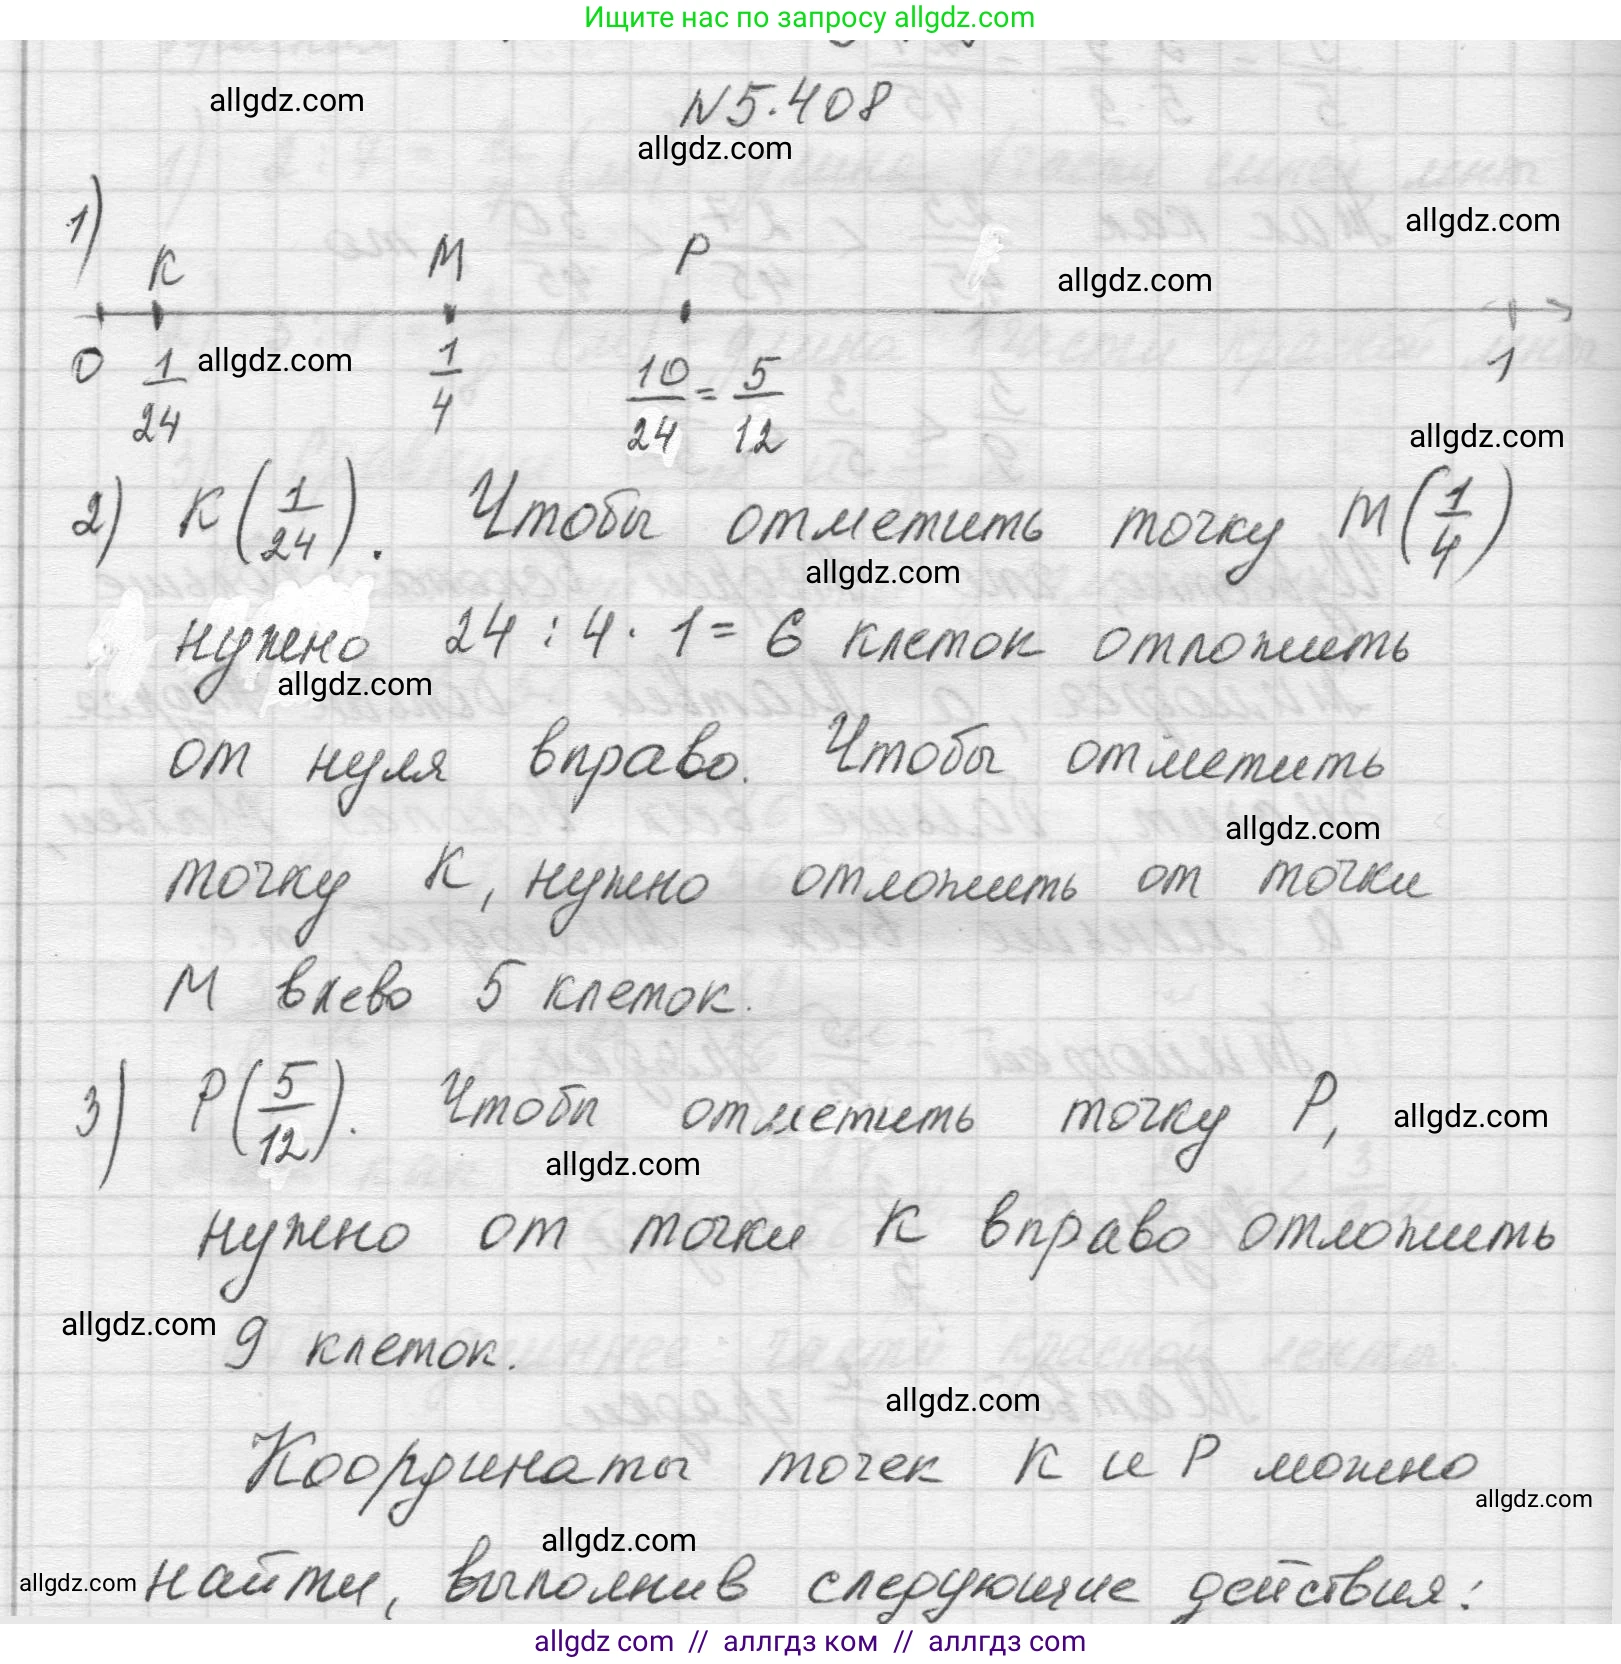 Ищите нас по запросу allgdz.com
allgdz.com
N5.408
allgdz.com
1)
allgdz.com
K M P
allgdz.com
0 1/24 1/4 10/24 = 5/12 1
allgdz.com
allgdz.com
2) K(1/24). Чтобы отметить точку M(1/4)
allgdz.com
нужно 24 : 4 · 1 = 6 клеток отложить
allgdz.com
от нуля вправо. Чтобы отметить
allgdz.com
точку K, нужно отложить от точки
M влево 5 клеток.
3) P(5/12). Чтобы отметить точку P,
allgdz.com
allgdz.com
нужно от точки K вправо отложить
allgdz.com
9 клеток.
allgdz.com
Координаты точек K и P можно
allgdz.com
allgdz.com
allgdz.com
найти, выполнив следующие действия:
allgdz com // аллгдз ком // аллгдз com